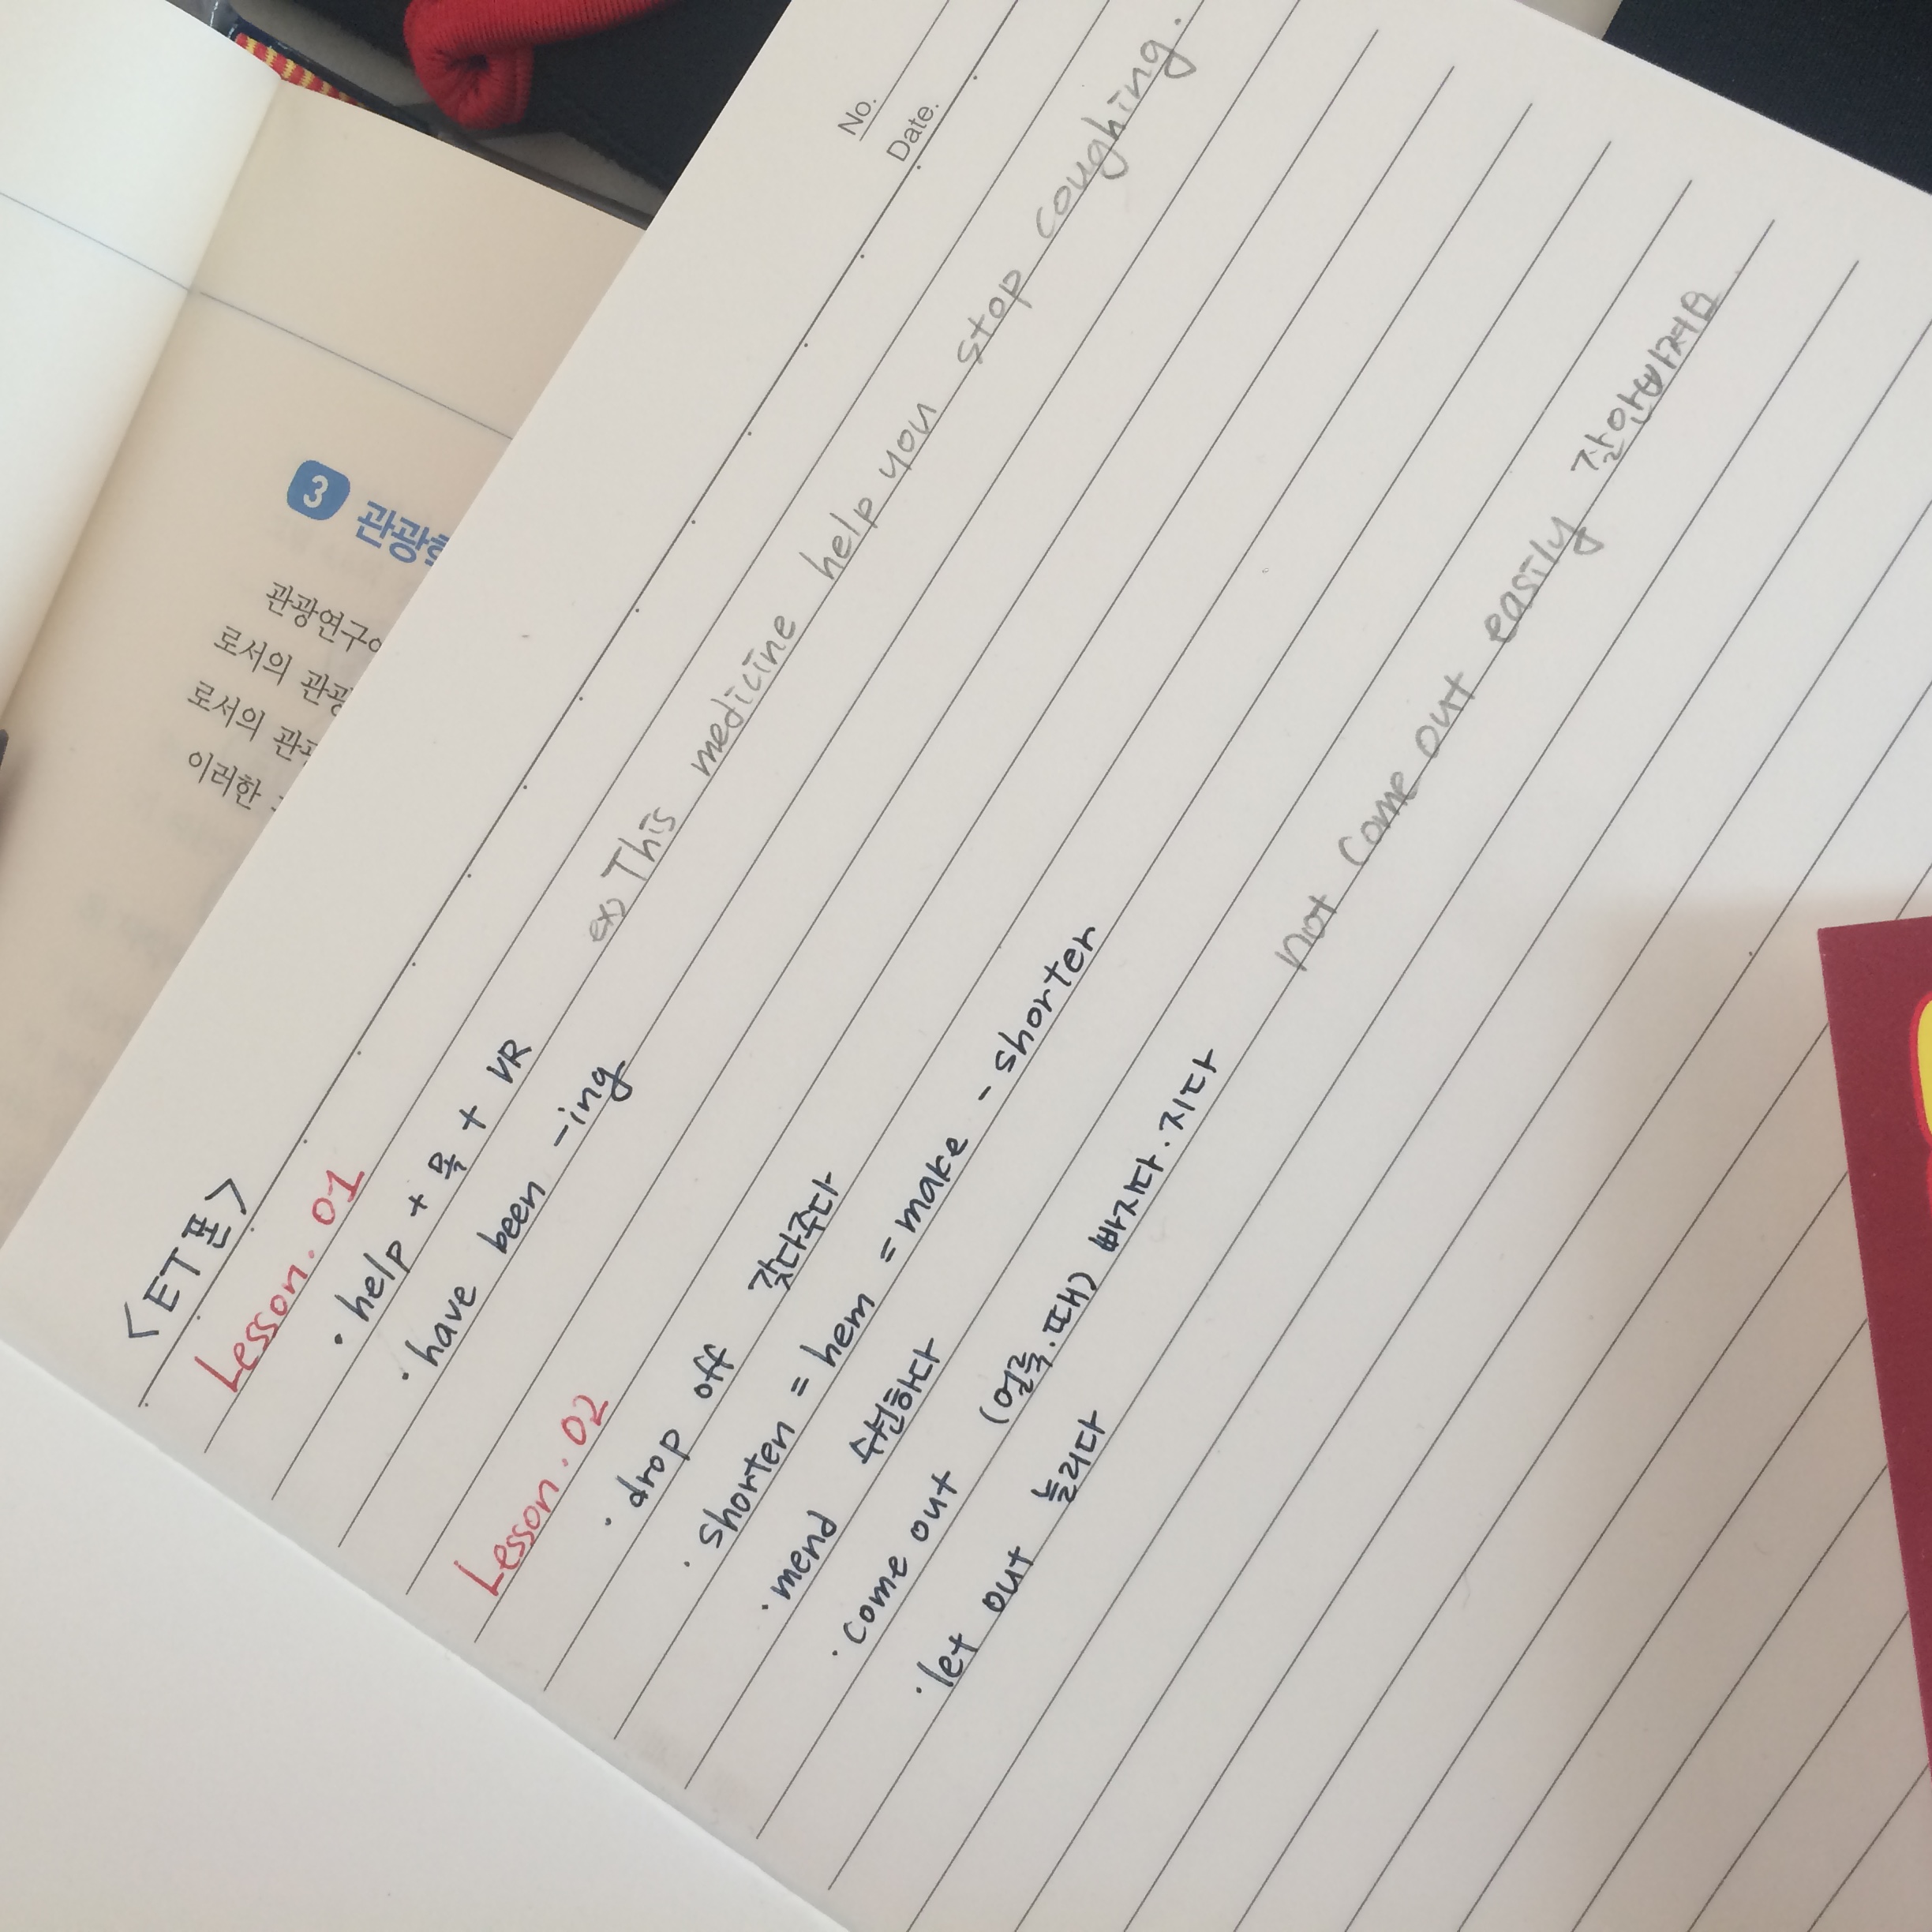 No.
Date.
<ET폰>
Lesson. 01
· help + 목 + VR ex) This medicine help you stop coughing.
· have been -ing
Lesson. 02
· drop off 갖다주다
· shorten = hem = make - shorter
· mend 수선하다
· come out (얼룩.때) 빠지다.지다 not come out easily 잘안빠져요
· let out 늘리다
3 관광
관광연구
로서의 관광
로서의
이러한